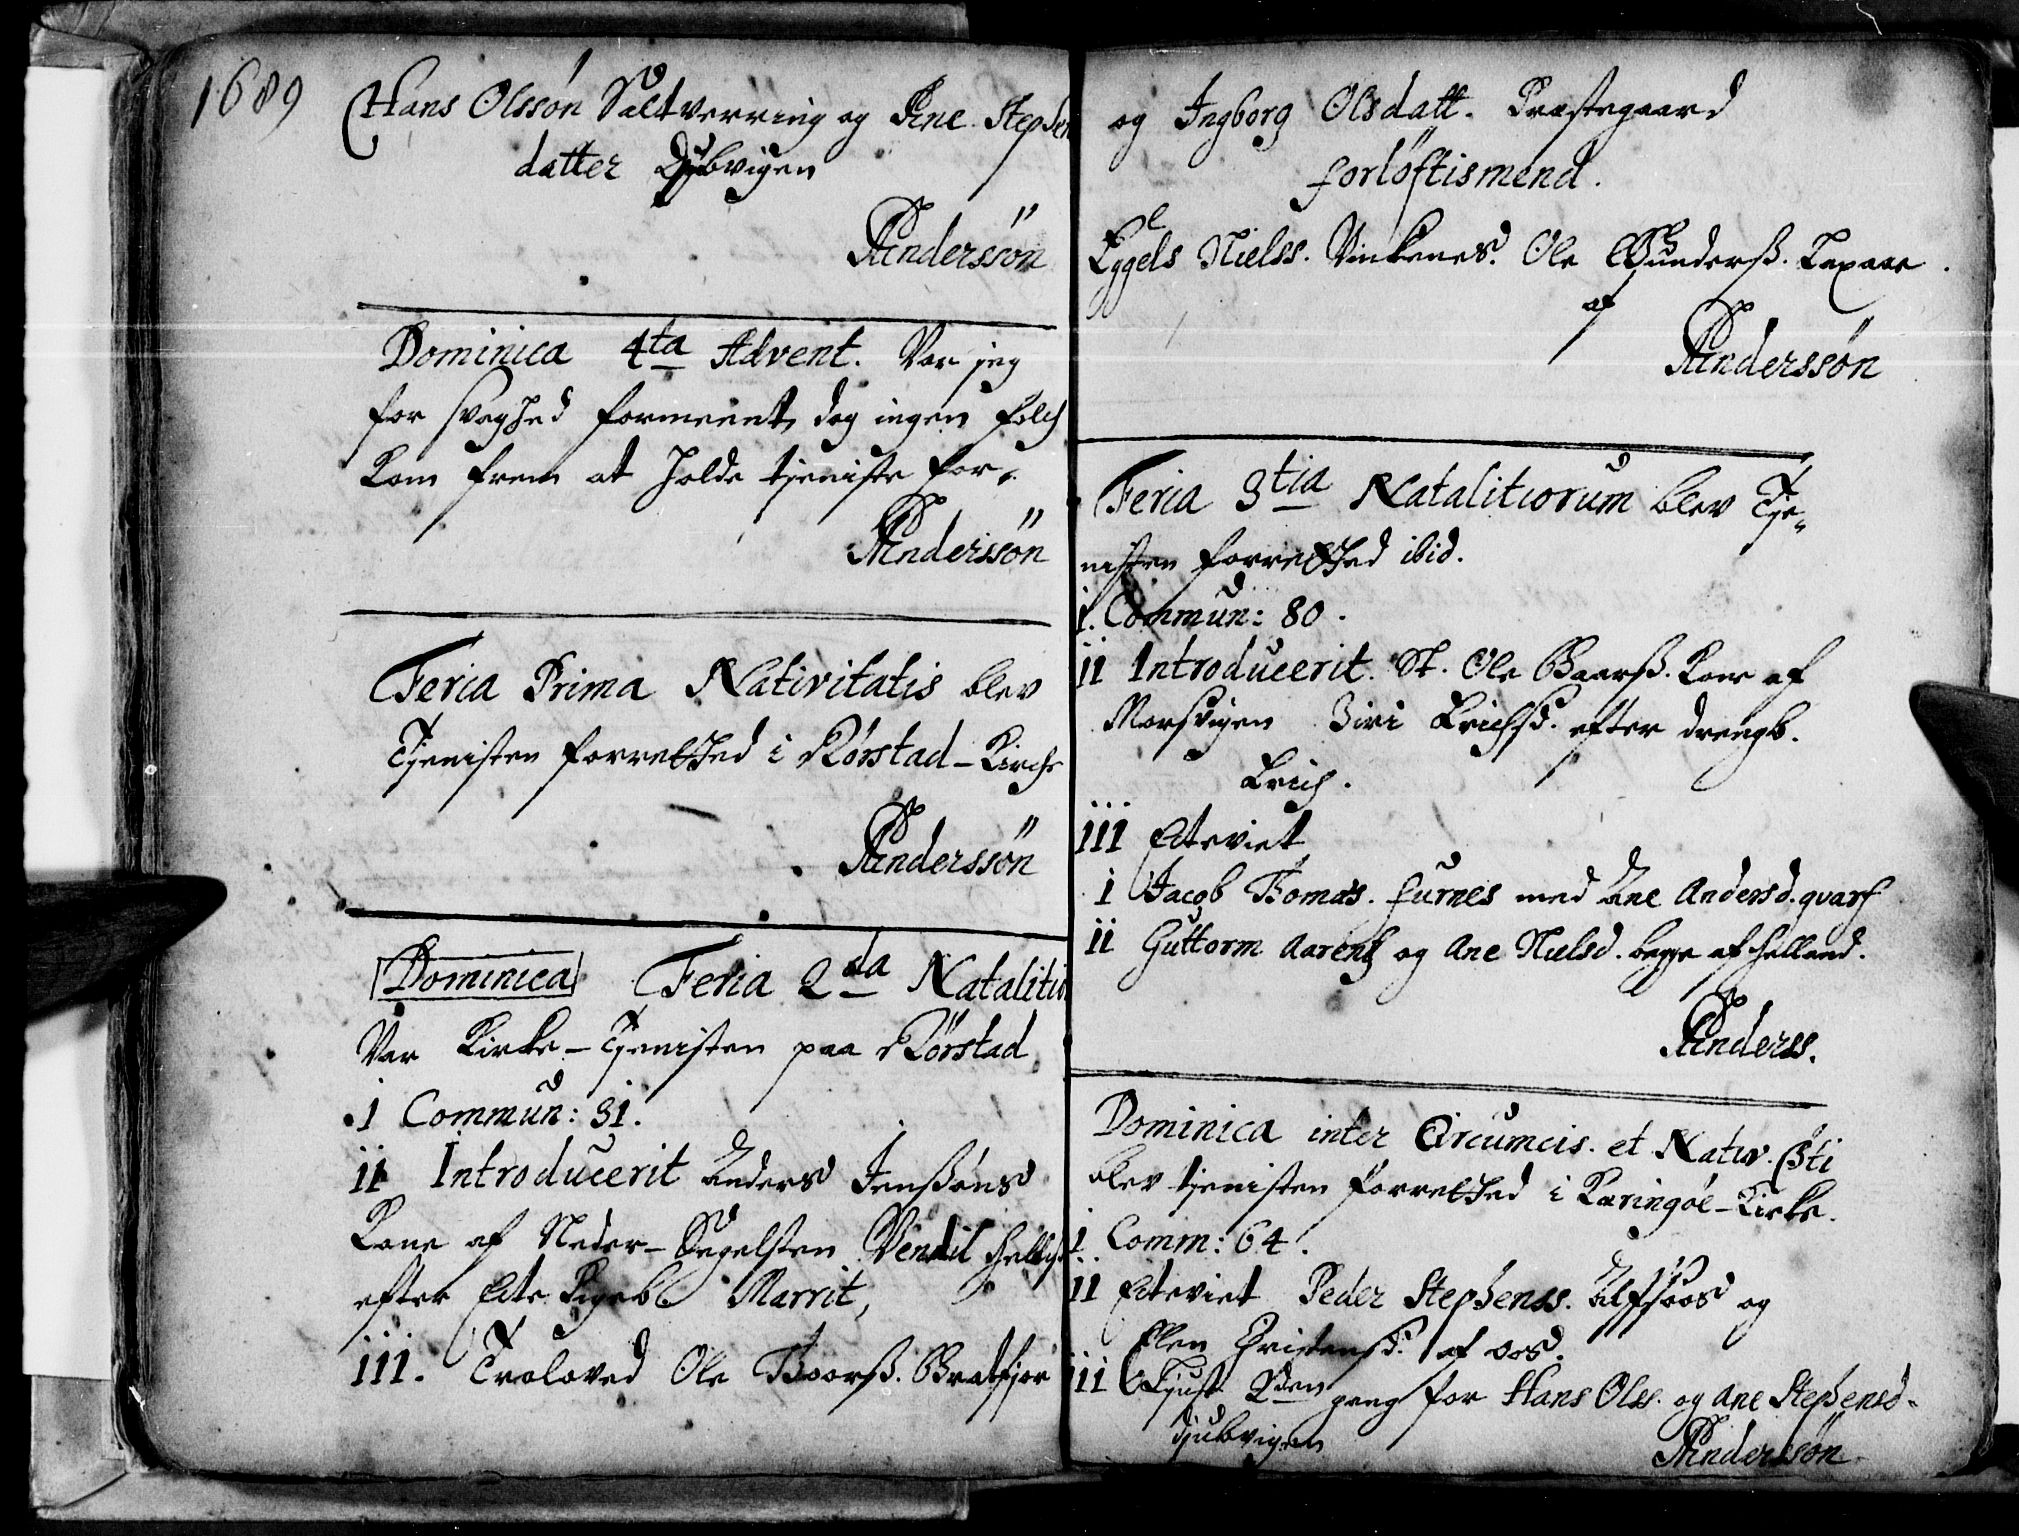 1689
Hans Olssøn Saltverring og Ane Stephen
datter Djubvigen
PAnderssøn
Dominica 4ta Advent. Var jeg
for svaghed formeent, dog ingen folch
kom frem at holde tjeniste for.
PAnderssøn
Feria Prima Nativitatis blev
Tjenisten forretthed i Rørstad-Kirche
PAnderssøn
Dominica Feria 2da Natalitio
Var Kirke-Tjenisten paa Rørstad
i Commun: 31.
ii Introducerit Anders Jenssøns
Kone af Neder-Segelsten Vendil
efter Ecte Pigeb. Marrit,
iii. Troloved Ole Thoorß. Bratfjor
og Ingborg Olsdatt. Præstegaard
forløftismend.
Eggels Nielss. Vinkenes. Ole Gunderß. Laxaae.
af
PAnderssøn
Feria 3tia Natalitiorum blev Tje-
nisten forretthed ibid.
i. Commun: 80.
ii Introducerit. St. Ole Baarß. Kone af
Morsvigen Ziri Erichsd. efter drengb.
Erich.
iii Ecteviet
i Jacob Thomas. furnes med Ane Andersd. qvarf
ii Guttorm Aarenß og Ane Nielsd. begge af helland.
PAnderss.
Dominica inter Circumcis. et Nativ. Chti
blev tjenisten forretthed i Karingøe-Kirke.
i Comm: 64.
ii Ecteviet Peder Stephenss. og
Elen Christensd. af oos.
iii Liust 2den gang for Hans Olss. og Ane Stephensd.
Djubvigen
PAnderssøn